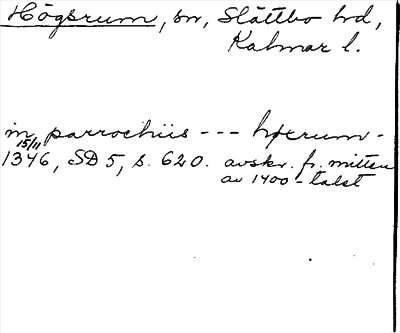 Högsrum, sn, Slättbo hd,
Kalmar l.
in parrochiis --- høxrum -
15/11
1346, SD 5, s. 620. avskr. fr. mitten
av 1400-talet